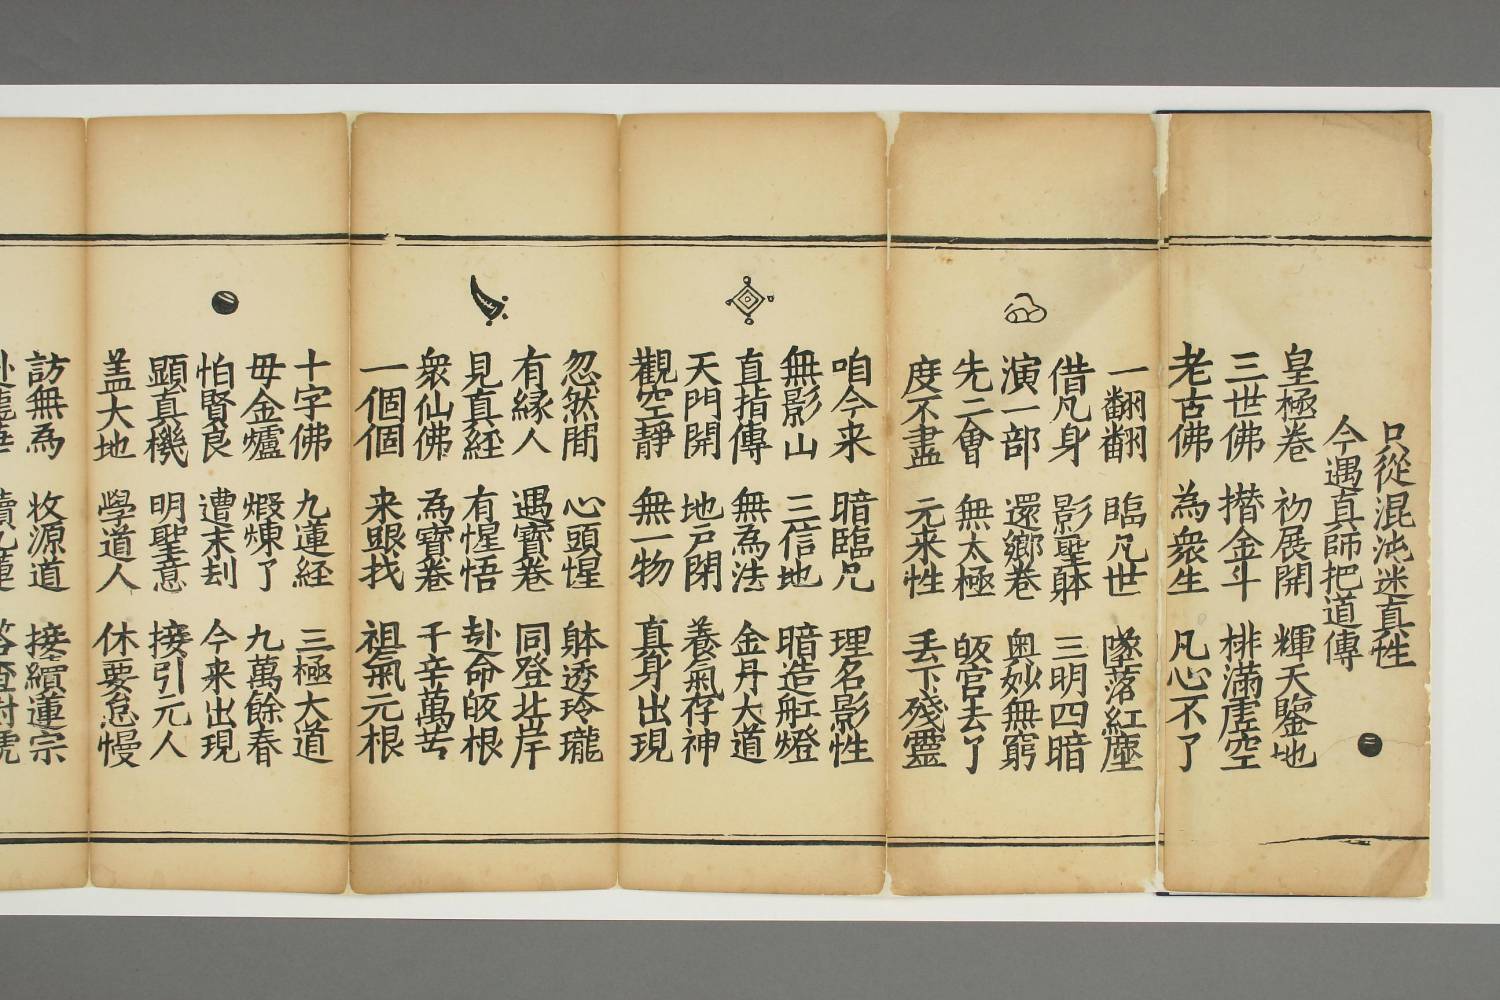 只從混沌迷真性
今遇真師把道傳
二
皇極卷 初展開 輝天鑒地
三世佛 攢金斗 棑滿虛空
老古佛 為衆生 凡心不了
一翻翻 臨凡世 墜落紅塵
借凡身 影聖躰 三明四暗
演一部 還鄉卷 奥妙無窮
先二會 無太極 皈宫去了
度不盡 元来性 丢下殘靈
咱今来 暗臨凡 理名影性
無影山 三信地 暗造舡燈
直指傳 無為法 金丹大道
天門開 地戸閉 養氣存神
觀空靜 無一物 真身出現
忽然間 心頭惺 躰透玲瓏
有緣人 遇寶卷 同登北岸
見真経 有惺悟 赴命皈根
衆仙佛 為寶卷 千辛萬苦
一個個 来跟找 祖氣元根
十字佛 九蓮経 三極大道
毋金爐 煅煉了 九萬餘春
怕賢良 遭末刦 今来出現
顯真機 明聖意 接引元人
盖大地 學道人 休要怠慢
訪無為 收源道 接續蓮宗